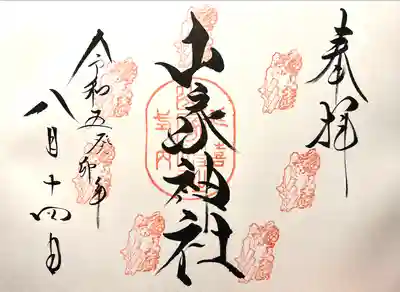 奉拝
山家神社
令和五癸卯年
八月十四日